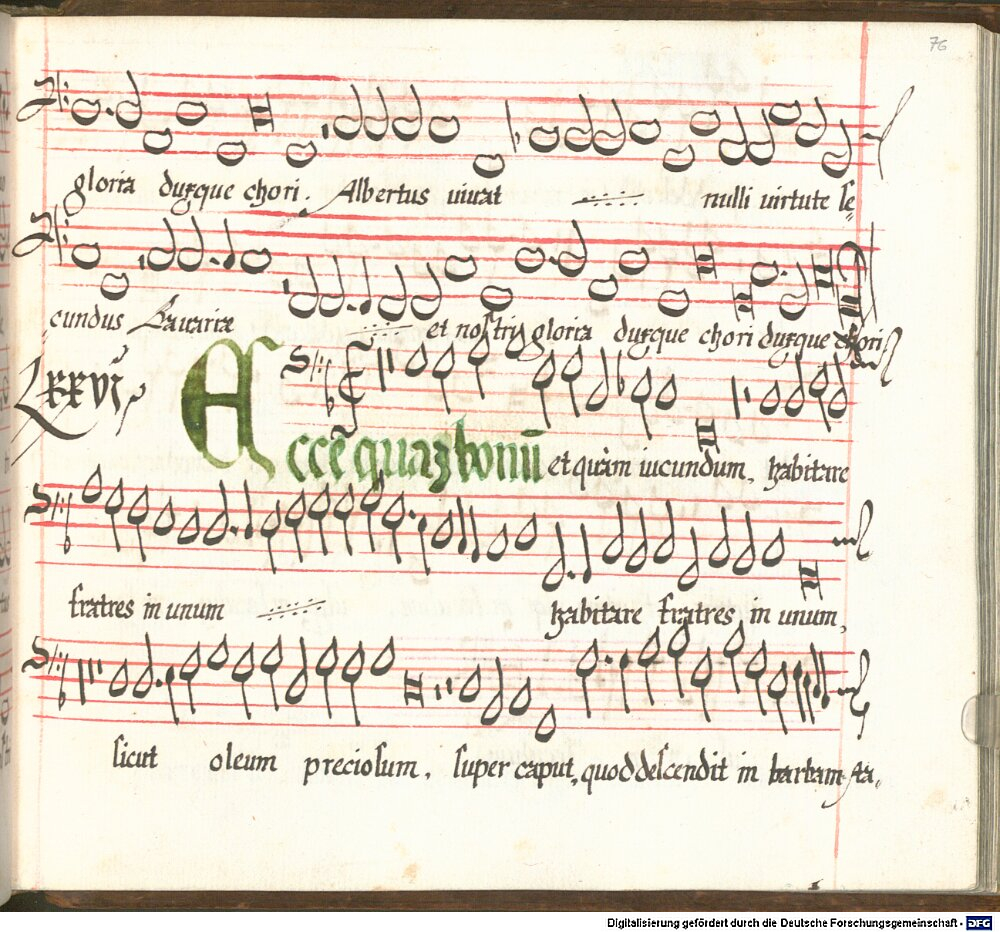 76
gloria duxque chori. Albertus vivat nulli virtute se=
cundus Bavariæ et nostri gloria duxque chori duxque chori
LXXVI
Ecce quaz bonū et quàm iucundum, habitare
fratres in unum habitare fratres in unum,
sicut oleum preciosum, super caput, quod descendit in barbam
Digitalisierung gefördert durch die Deutsche Forschungsgemeinschaft - DFG